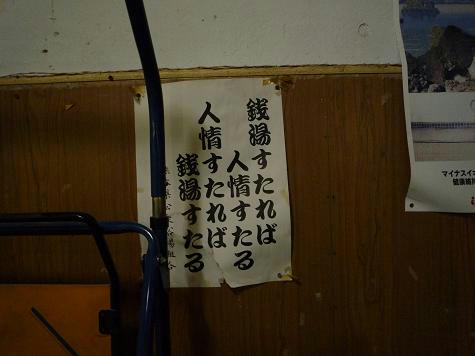 銭湯すたれば
人情すたる
人情すたれば
銭湯すたる
マイナスイオ
健康